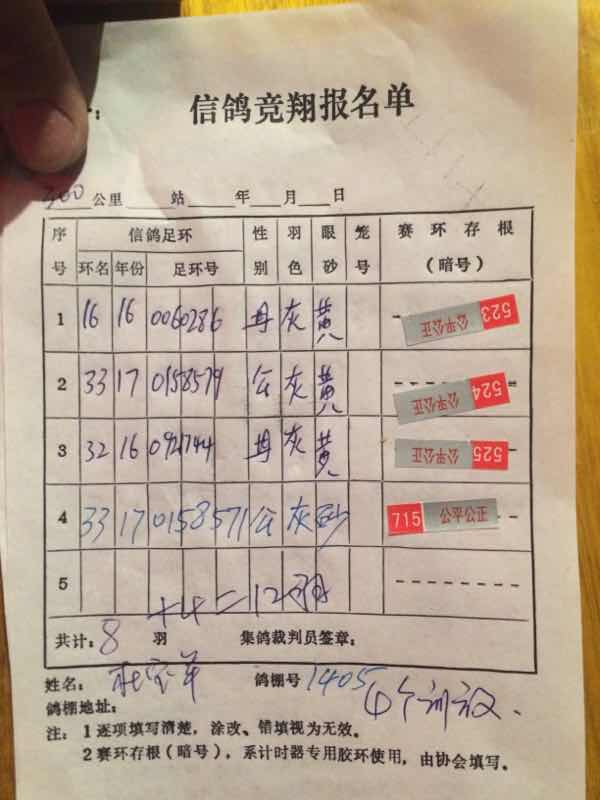 信鸽竞翔报名单
300 公里 站 年 月 日
序号 信鸽足环 性别 羽色 眼砂 笼号 赛环存根(暗号)
环名 年份 足环号
1 16 16 0060286 母 灰 黄 公平公正 523
2 33 17 0158579 公 灰 黄 公平公正 524
3 32 16 092744 母 灰 黄 公平公正 525
4 33 17 0158571 公 灰 砂 715 公平公正
5
+4=12羽
共计:8 羽 集鸽裁判员签章:
姓名:杜宝 鸽棚号 1405
鸽棚地址:
注:1逐项填写清楚,涂改、错填视为无效。
2赛环存根(暗号),系计时器专用胶环使用,由协会填写。